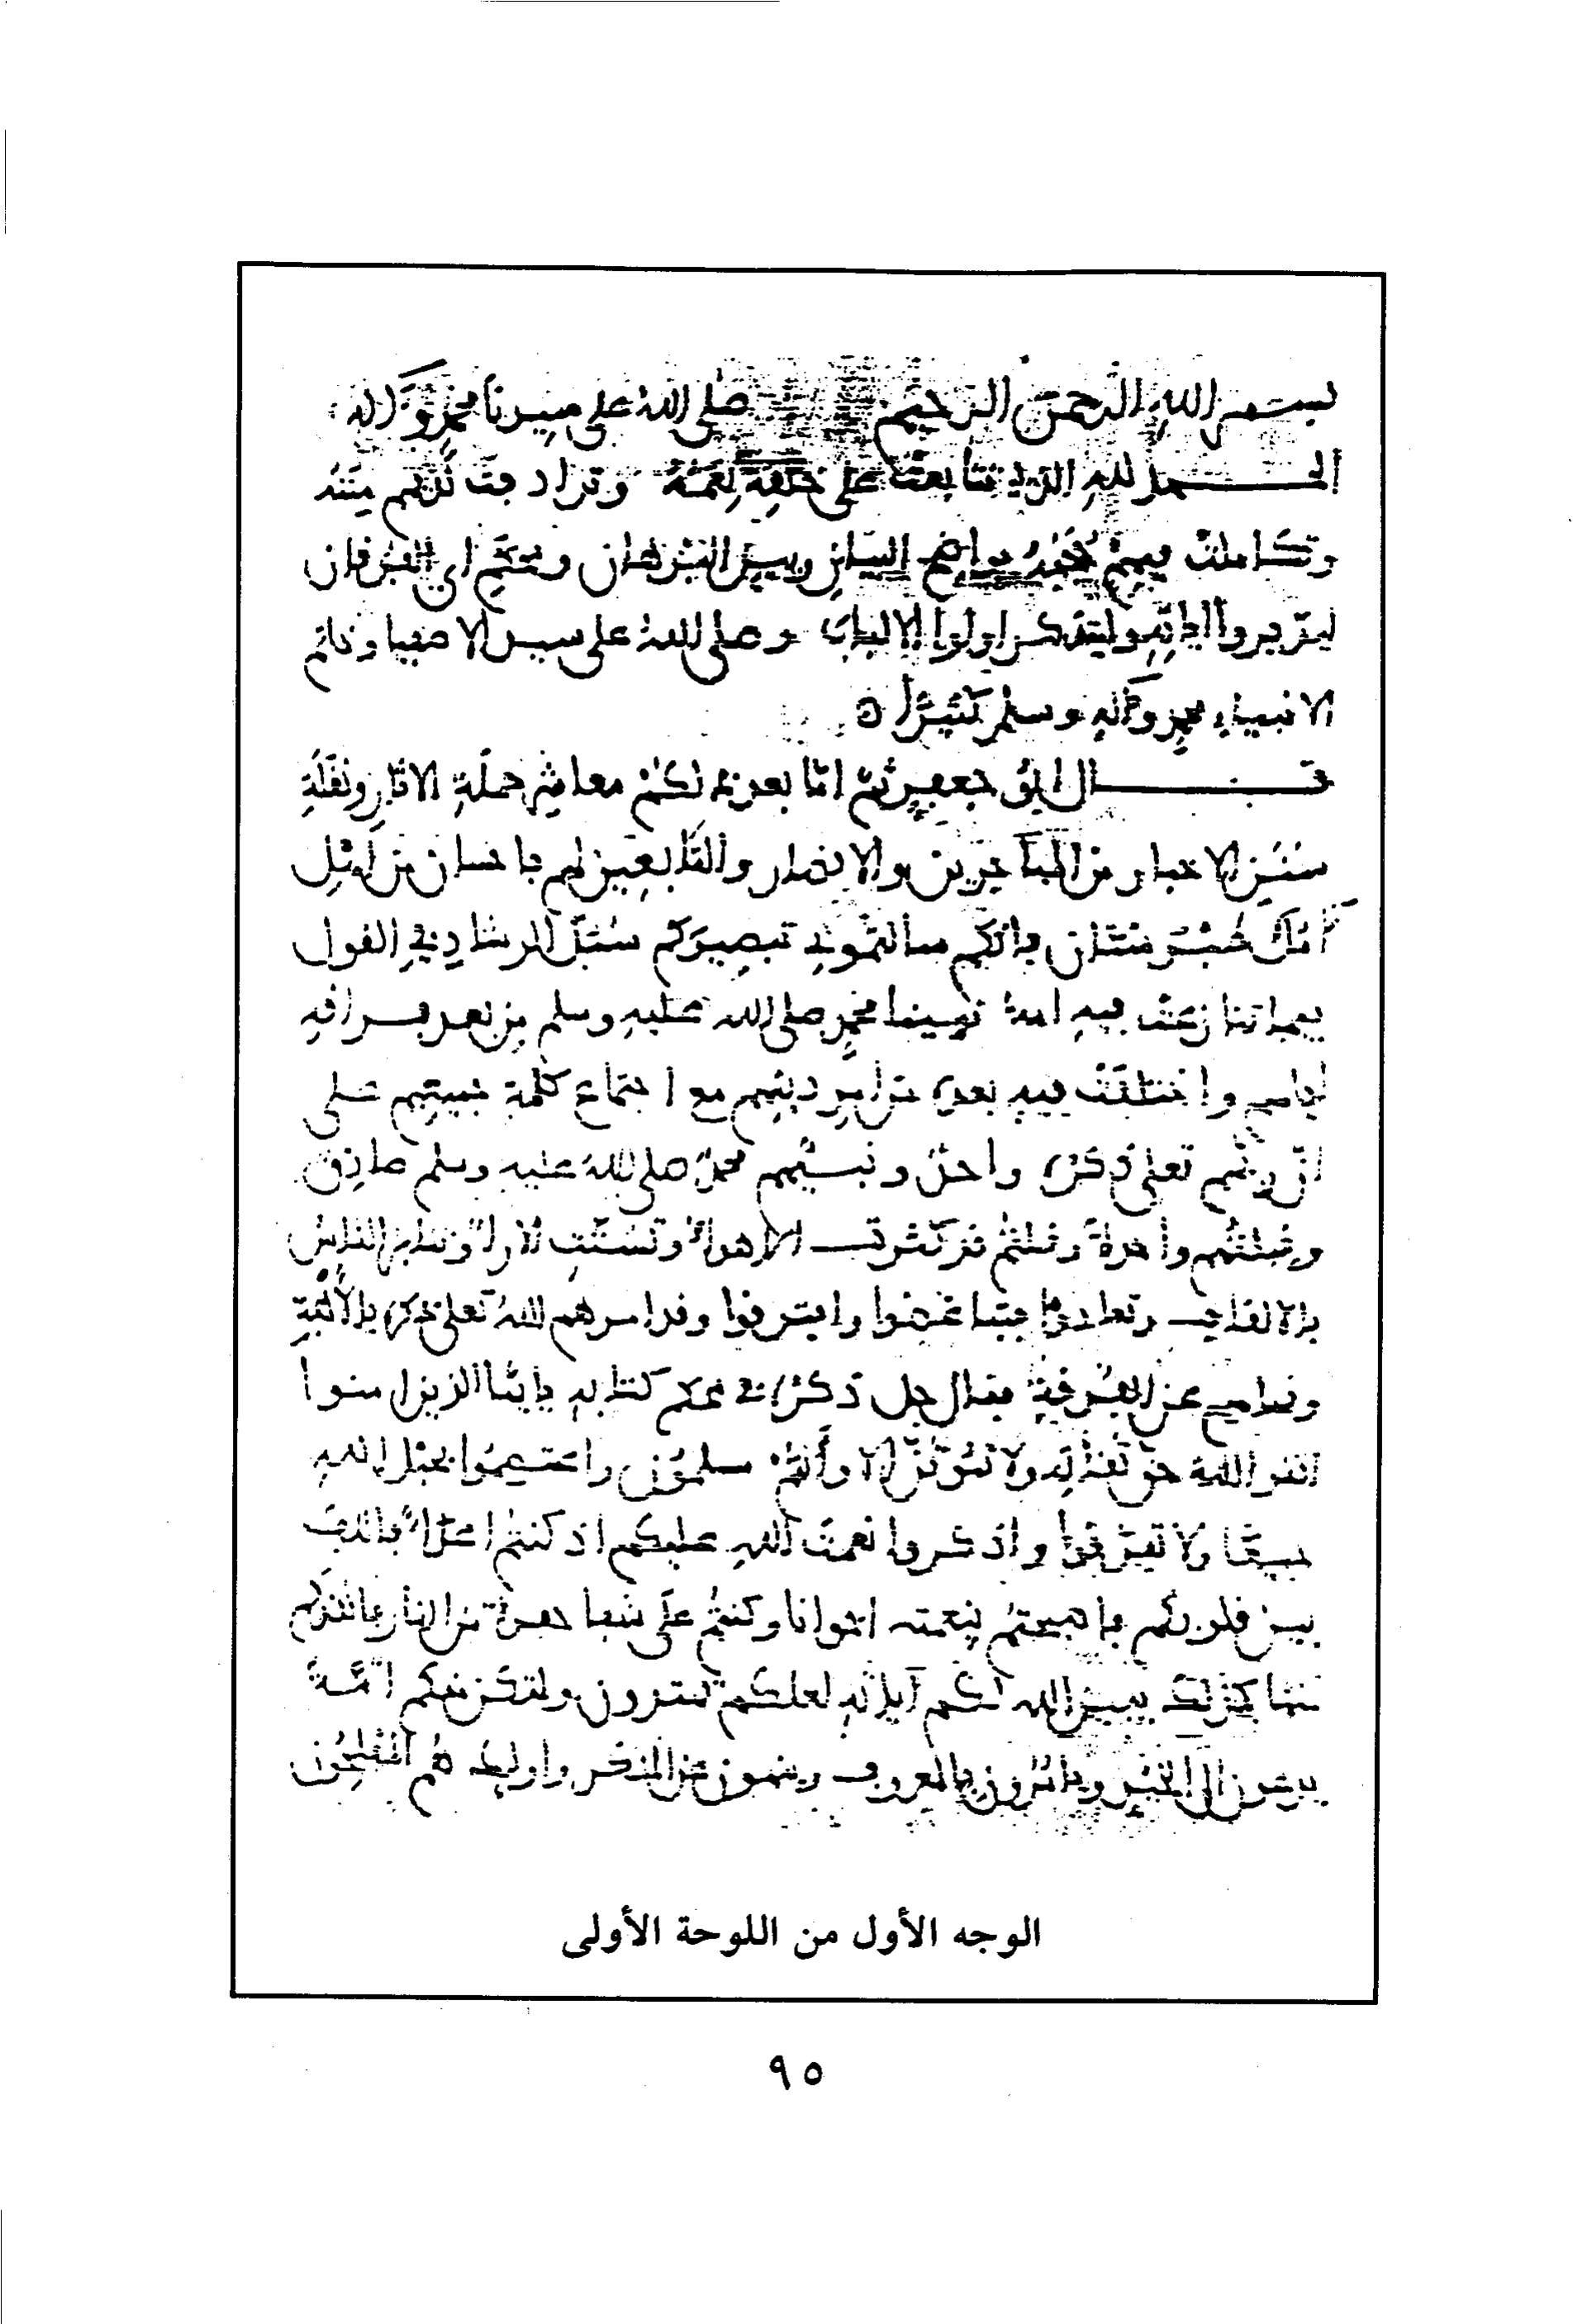 بسم الله الرحمن الرحيم صلى الله على سيدنا محمد وآله
الحمد لله الذي تتابعت على خلقه نعمه وترادفت لديهم مننه
وتكاملت فيهم حججه بواضح البيان وبين البرهان ومحكم آي الفرقان
ليدبروا آياته وليتذكر اولوا الالباب وصلى الله على سيد الاصفيا وخاتم
الانبياء محمد وآله وسلم كثيرا
قال ابو جعفر ثم اما بعد لكم معاشر حملة الاثار ونقلة
سنن الاخبار من المهاجرين والانصار والتابعين لهم باحسان من اهل
فانكم سالتموني تبصيركم سبل الرشاد في القول
فيما تنازعت فيه امة نبينا محمد صلى الله عليه وسلم من بعد فراقه
اياهم واختلفت فيه بعده من امر دينهم مع اجتماع كلمة جميعهم على
ان ربهم تعلى ذكره واحد ونبيهم محمد صلى الله عليه وسلم صادق
وقبلتهم واحدة وقلتم قد كثرت الاهواء وتشتت الاراء وتنابز الناس
بالالقاب وتعادوا فيها فتباغضوا وافترقوا وقد امرهم الله تعلى ذكره بالالفة
ونهاهم عن الفرقة فقال جل ذكره في محكم كتابه يايها الذين امنوا
اتقوا الله حق تقاته ولا تموتن الا وأنتم مسلمون واعتصموا بحبل الله
جميعا ولا تفرقوا واذكروا نعمت الله عليكم اذ كنتم اعداء فالف
بين قلوبكم فاصبحتم بنعمته اخوانا وكنتم على شفا حفرة من النار فانقذكم
منها كذلك يبين الله لكم آياته لعلكم تهتدون ولتكن منكم امة
يدعون الى الخير ويامرون بالمعروف وينهون عن المنكر واوليك هم المفلحون
الوجه الأول من اللوحة الأولى
٩٥